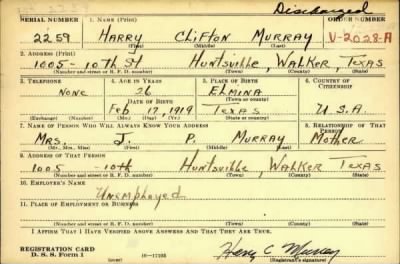 Discharged
SERIAL NUMBER 1. NAME (Print) ORDER NUMBER
2259 HARRY CLIFTON MURRAY V-2028-A
(First) (Middle) (Last)
2. ADDRESS (Print)
1005 - 10TH ST HUNTSVILLE, WALKER, TEXAS
(Number and street or R. F. D. number) (Town) (County) (State)
3. TELEPHONE 4. AGE IN YEARS 5. PLACE OF BIRTH 6. COUNTRY OF CITIZENSHIP
NONE 26 ELMINA
DATE OF BIRTH (Town or county)
Feb 17, 1919 TEXAS U.S.A
(Exchange) (Number) (Mo.) (Day) (Yr.) (State or country)
7. NAME OF PERSON WHO WILL ALWAYS KNOW YOUR ADDRESS 8. RELATIONSHIP OF THAT PERSON
MRS. J. P. MURRAY Mother
(Mr., Mrs., Miss) (First) (Middle) (Last)
9. ADDRESS OF THAT PERSON
1005 - 10th HUNTSVILLE, WALKER TEXAS
(Number and street or R. F. D. number) (Town) (County) (State)
10. EMPLOYER'S NAME
Unemployed
11. PLACE OF EMPLOYMENT OR BUSINESS
(Number and street or R. F. D. number) (Town) (County) (State)
I AFFIRM THAT I HAVE VERIFIED ABOVE ANSWERS AND THAT THEY ARE TRUE.
REGISTRATION CARD
D. S. S. Form 1 (over) 16-17105 Harry C Murray